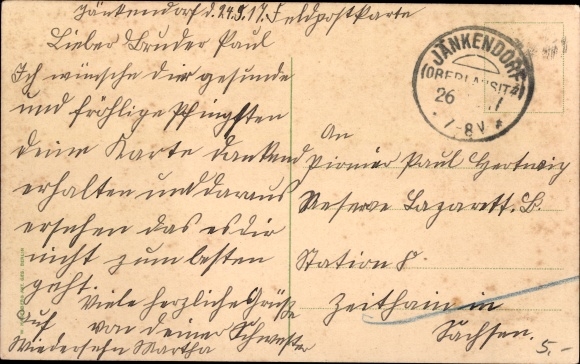 Jänkendorf d. 24.5.17. Feldpostkarte
Lieber Bruder Paul
Ich wünsche dir gesunde
und fröhlige Pfingsten
deine Karte dankend
erhalten und daraus
ersehen das es dir
nicht zum besten
geht.
Viele herzliche Grüße
Auf von deiner Schwester
Wiedersehn Martha
JÄNKENDORF
(OBERLAUSITZ)
26
7-8V *
An
Pionier Paul Hertwig
Reserve Lazarett. B.
Station 8.
Zeithain in
Sachsen.
5.-